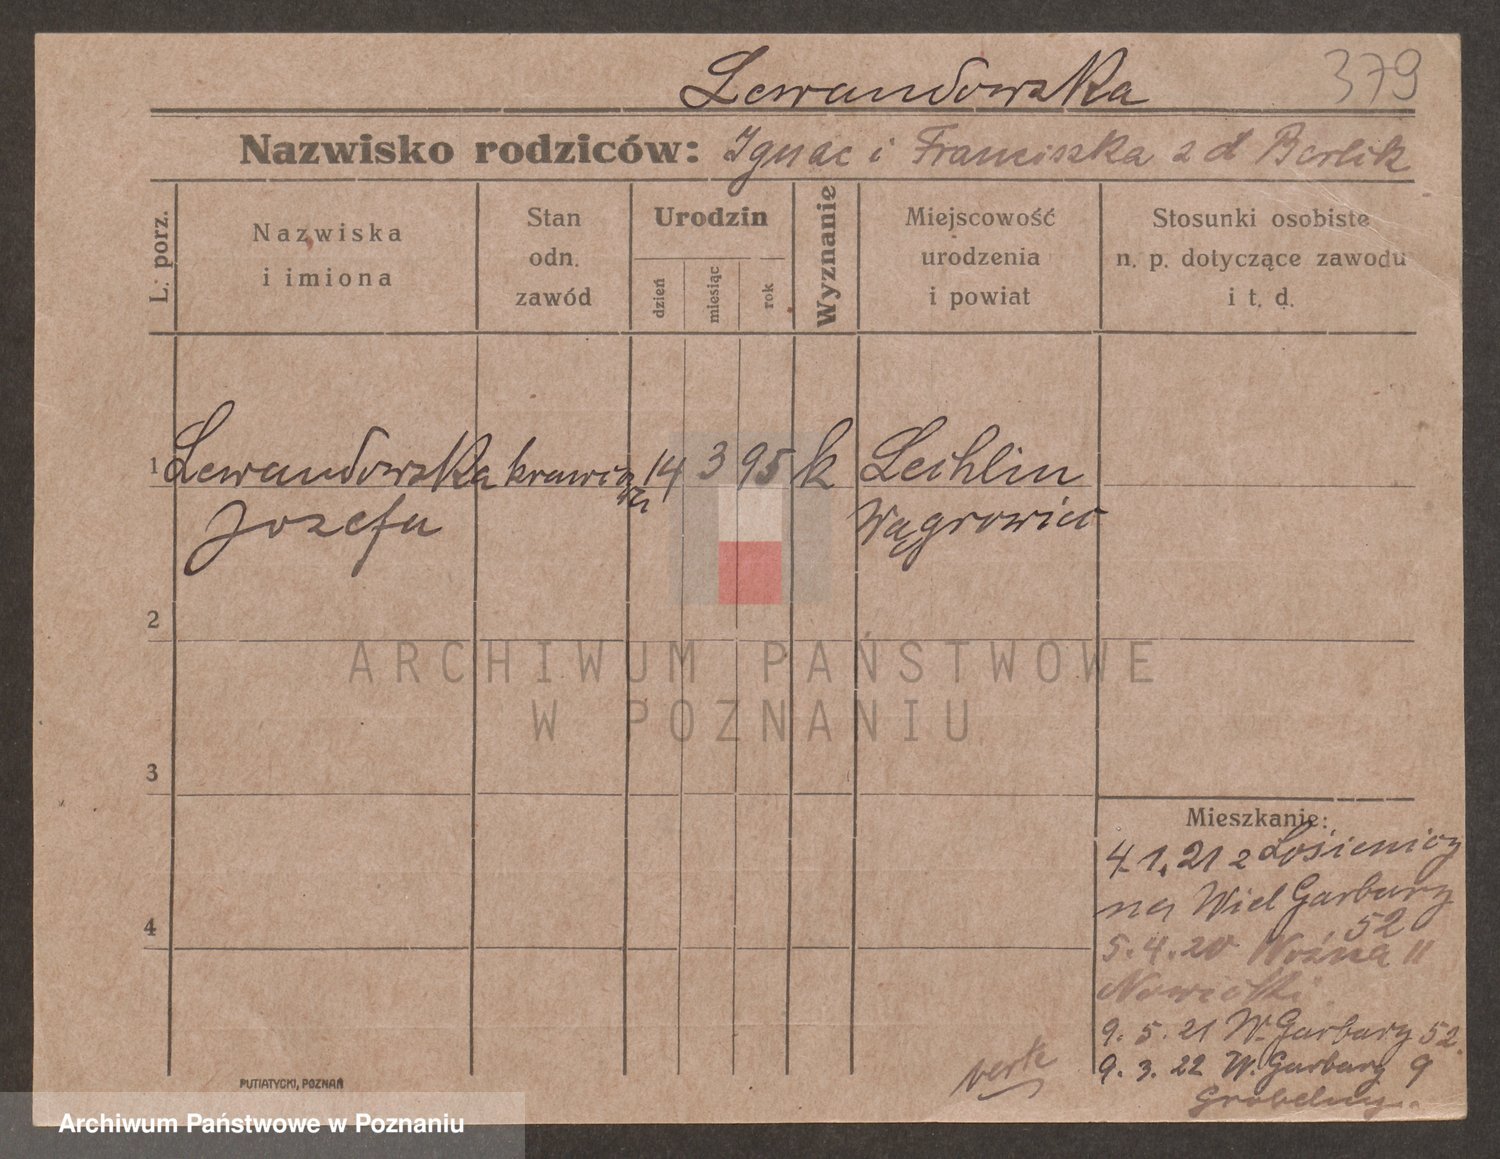 Lewandowska
379
Nazwisko rodziców: Ignac i Franciszka z d Berlik
L: porz.
Nazwiska
i imiona
Stan
odn.
zawód
Urodzin
dzień
miesiąc
rok
Wyznanie
Miejscowość
urodzenia
i powiat
Stosunki osobiste
n. p. dotyczące zawodu
i t. d.
1 Lewandowska krawcz 14 3 95 k Lechlin
Józefa Wągrowiec
2
3
4
ARCHIWUM PAŃSTWOWE
W POZNANIU
Mieszkanie:
4.1.21 z
na Wiel Garbary
52
5.4.20 Woźna 11
Nowicki
9.5.21 W. Garbary 52.
9.3.22 W. Garbary 9
PUTIATYCKI, POZNAŃ
Archiwum Państwowe w Poznaniu